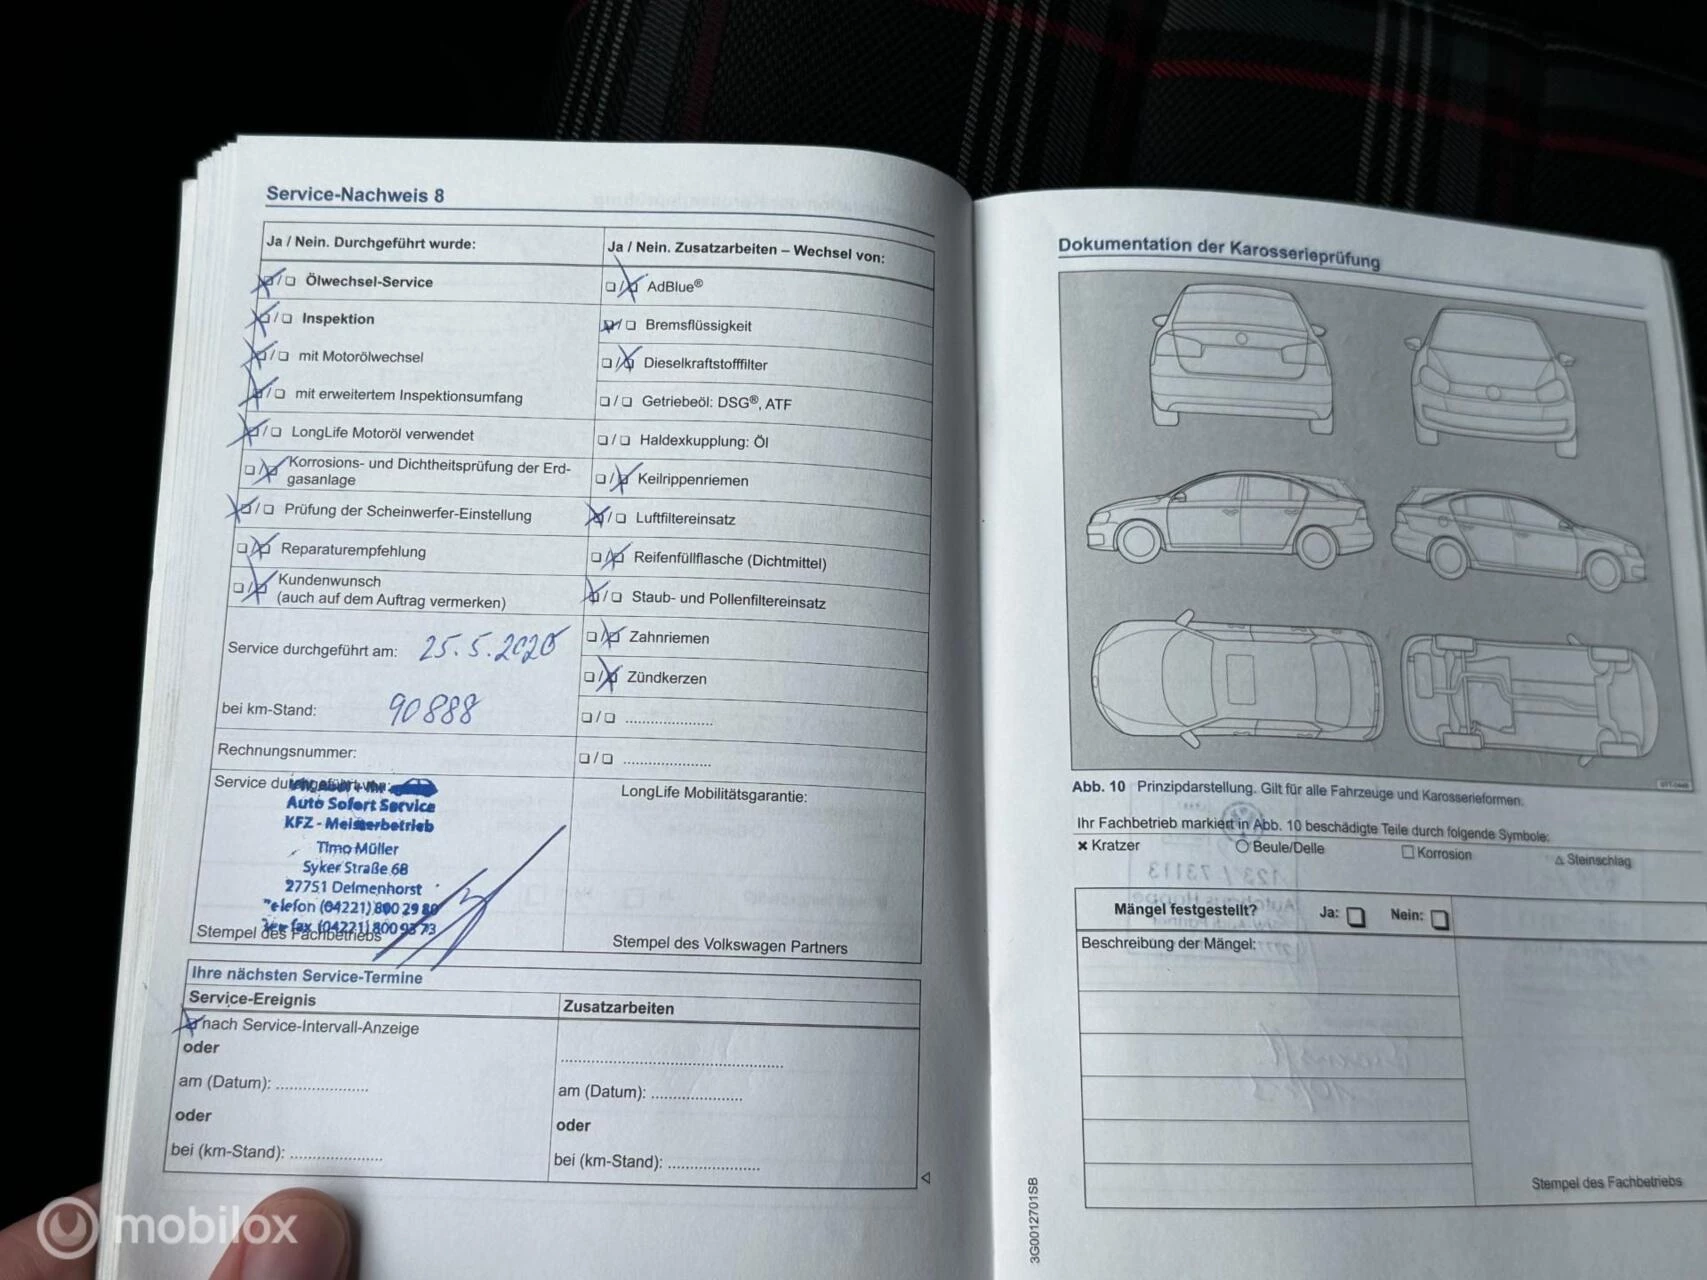 Service-Nachweis 8
Ja / Nein. Durchgeführt wurde:
❏ / ❏ Ölwechsel-Service
❏ / ❏ Inspektion
❏ / ❏ mit Motorölwechsel
❏ / ❏ mit erweitertem Inspektionsumfang
❏ / ❏ LongLife Motoröl verwendet
❏ / ❏ Korrosions- und Dichtheitsprüfung der Erd-
gasanlage
❏ / ❏ Prüfung der Scheinwerfer-Einstellung
❏ / ❏ Reparaturempfehlung
❏ / ❏ Kundenwunsch
(auch auf dem Auftrag vermerken)
Service durchgeführt am: 25.5.2020
bei km-Stand: 90888
Rechnungsnummer:
Service durchgeführt von:
Auto Sofort Service
KFZ - Meisterbetrieb
Timo Müller
Syker Straße 68
27751 Delmenhorst
Telefon (04221) 800 29 80
Telefax (04221) 800 93 73
Stempel des Fachbetriebs
Ja / Nein. Zusatzarbeiten – Wechsel von:
❏ / ❏ AdBlue®
❏ / ❏ Bremsflüssigkeit
❏ / ❏ Dieselkraftstofffilter
❏ / ❏ Getriebeöl: DSG®, ATF
❏ / ❏ Haldexkupplung: Öl
❏ / ❏ Keilrippenriemen
❏ / ❏ Luftfiltereinsatz
❏ / ❏ Reifenfüllflasche (Dichtmittel)
❏ / ❏ Staub- und Pollenfiltereinsatz
❏ / ❏ Zahnriemen
❏ / ❏ Zündkerzen
❏ / ❏ ......................
❏ / ❏ ......................
LongLife Mobilitätsgarantie:
Stempel des Volkswagen Partners
Ihre nächsten Service-Termine
Service-Ereignis
❏ nach Service-Intervall-Anzeige
oder
am (Datum): .....................
oder
bei (km-Stand): .....................
Zusatzarbeiten
..................................................
am (Datum): .....................
oder
bei (km-Stand): .....................
Dokumentation der Karosserieprüfung
Abb. 10 Prinzipdarstellung. Gilt für alle Fahrzeuge und Karosserieformen.
Ihr Fachbetrieb markiert in Abb. 10 beschädigte Teile durch folgende Symbole:
✖ Kratzer ○ Beule/Delle □ Korrosion △ Steinschlag
Mängel festgestellt? Ja: ❏ Nein: ❏
Beschreibung der Mängel:
Stempel des Fachbetriebs
3G0012701SB
mobilox